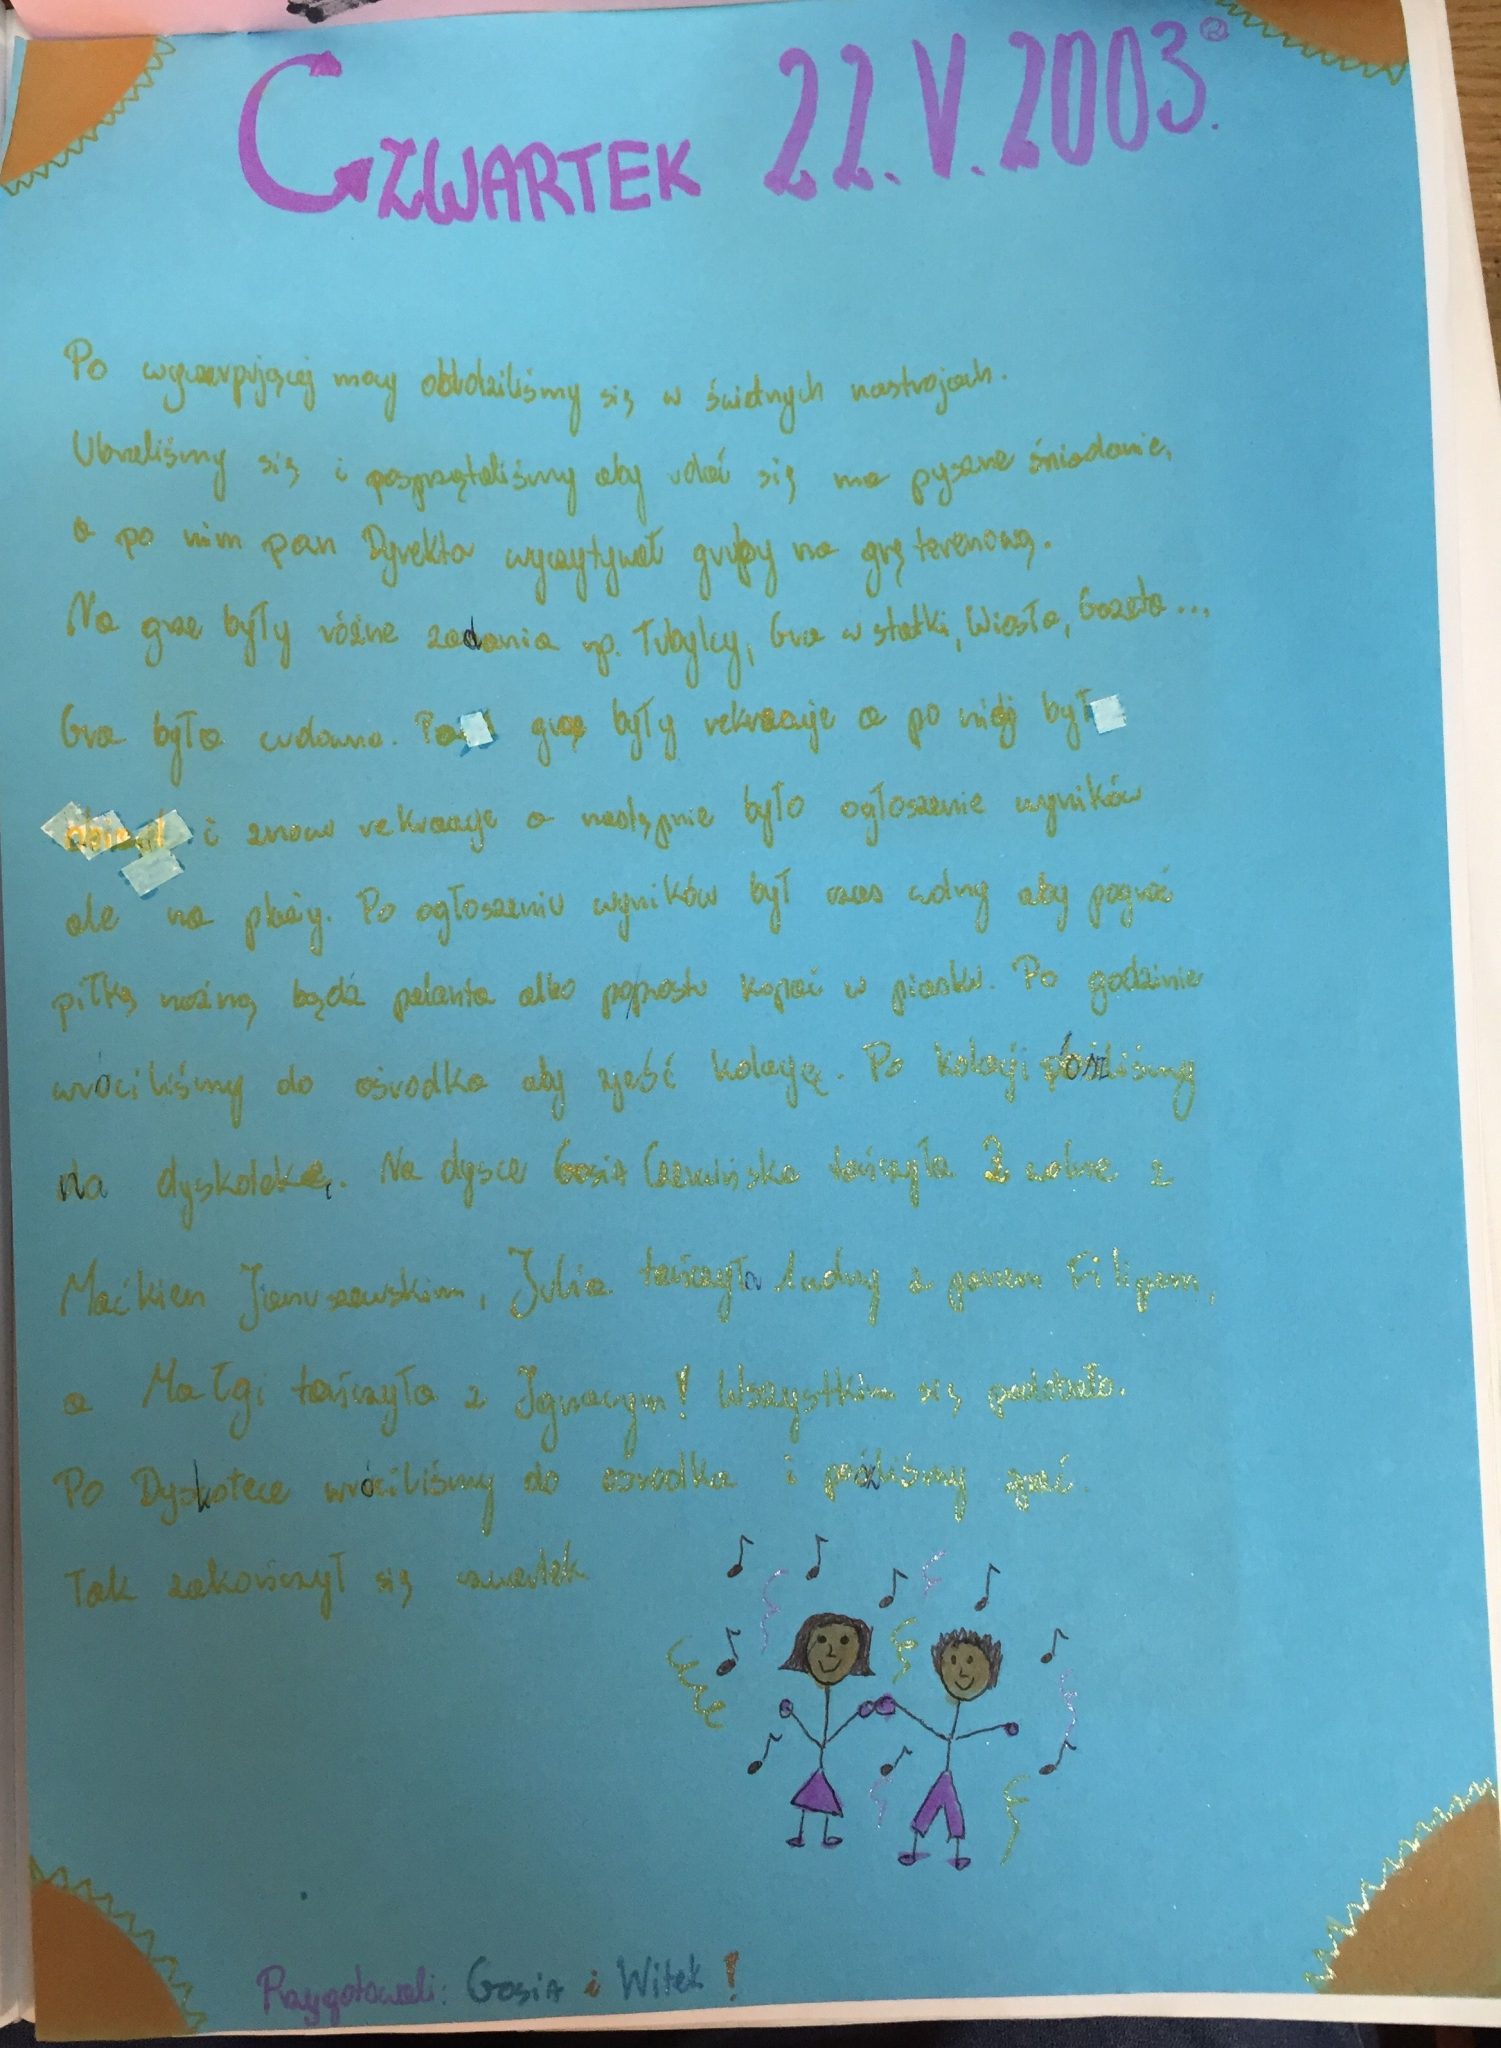 CZWARTEK 22.V.2003.
Po wyczerpującej nocy obudziliśmy się w świetnych nastrojach.
Ubraliśmy się i posprzątaliśmy aby udać się na pyszne śniadanie,
a po nim pan Dyrekto wyczytywał grupy na grę terenową.
Na grze były różne zadania np. Tubylcy, Gra w statki, Wiosła, Gazeta...
Gra była cudowna. Po grze były rekreacje a po niej był
obiad i znow rekreacje a następnie było ogłoszenie wyników
ale na plaży. Po ogłoszeniu wyników był czas wolny aby pograć
piłkę nożną bądź palanta albo poprostu kopać w piasku. Po godzinie
wróciliśmy do ośrodka aby zjeść kolację. Po kolacji poszliśmy
na dyskotekę. Na dysce Gosia tańczyła 2 wolne z
Maćkiem Januszewskim, Julia tańczyła 1 wolny z panem Filipem,
a Małgi tańczyła z Ignacym! Wszystkim się podobało.
Po Dyskotece wróciliśmy do ośrodka i poszliśmy spać.
Tak zakończył się czwartek
Przygotowali: Gosia i Witek!